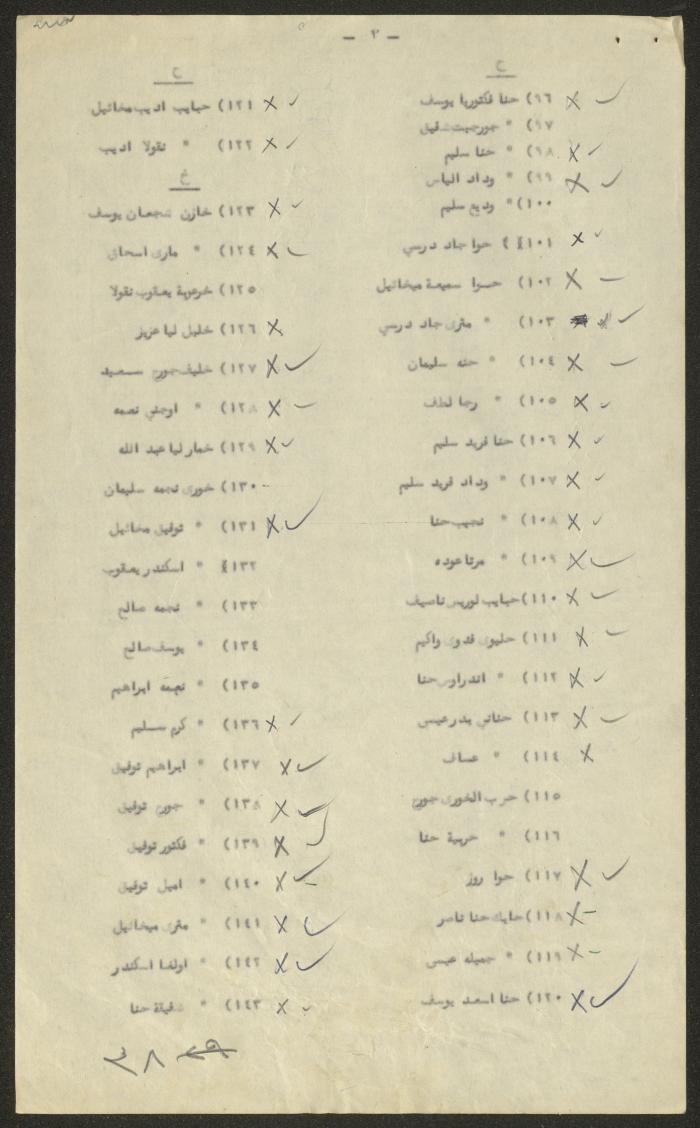 - ٢ -
ح
٩٦) حنا فكتوريا يوسف
٩٧) " جورجيت شفيل
٩٨) " حنا سليم
٩٩) " وداد الياس
١٠٠) " وديع سليم
١٠١) حوا جاد درسي
١٠٢) حوا سميعة ميخائيل
١٠٣) " متري جاد درسي
١٠٤) " حنه سليمان
١٠٥) " رجا لطف
١٠٦) حنا فريد سليم
١٠٧) " وداد فريد سليم
١٠٨) " نجيب حنا
١٠٩) " مرتا عوده
١١٠) حبايب لوريس ناصيف
١١١) حليوي فدوى واكيم
١١٢) " اندراوس حنا
١١٣) حناتي بدر عيسى
١١٤) " عساف
١١٥) حرب الخوري جورج
١١٦) " حربية حنا
١١٧) حوا روز
١١٨) حايك حنا ناصر
١١٩) " جميله عيسى
١٢٠) حنا اسعد يوسف
ح
١٢١) حبايب اديب ميخائيل
١٢٢) " نقولا اديب
خ
١٢٣) خازن شجعان يوسف
١٢٤) " ماري اسحاق
١٢٥) خرعوبة يعقوب نقولا
١٢٦) خليل ليا عزيز
١٢٧) خليف جورج سعيد
١٢٨) " اوجني نعمه
١٢٩) خمار ليا عبد الله
١٣٠) خوري نجمه سليمان
١٣١) " توفيق مخائيل
١٣٢) " اسكندر يعقوب
١٣٣) " نجمه صالح
١٣٤) " يوسف صالح
١٣٥) " نجمه ابراهيم
١٣٦) " كرم سليم
١٣٧) " ابراهيم توفيق
١٣٨) " جورج توفيق
١٣٩) " فكتور توفيق
١٤٠) " اميل توفيق
١٤١) " متري ميخائيل
١٤٢) " اولغا اسكندر
١٤٣) " شفيقة حنا
٣٨